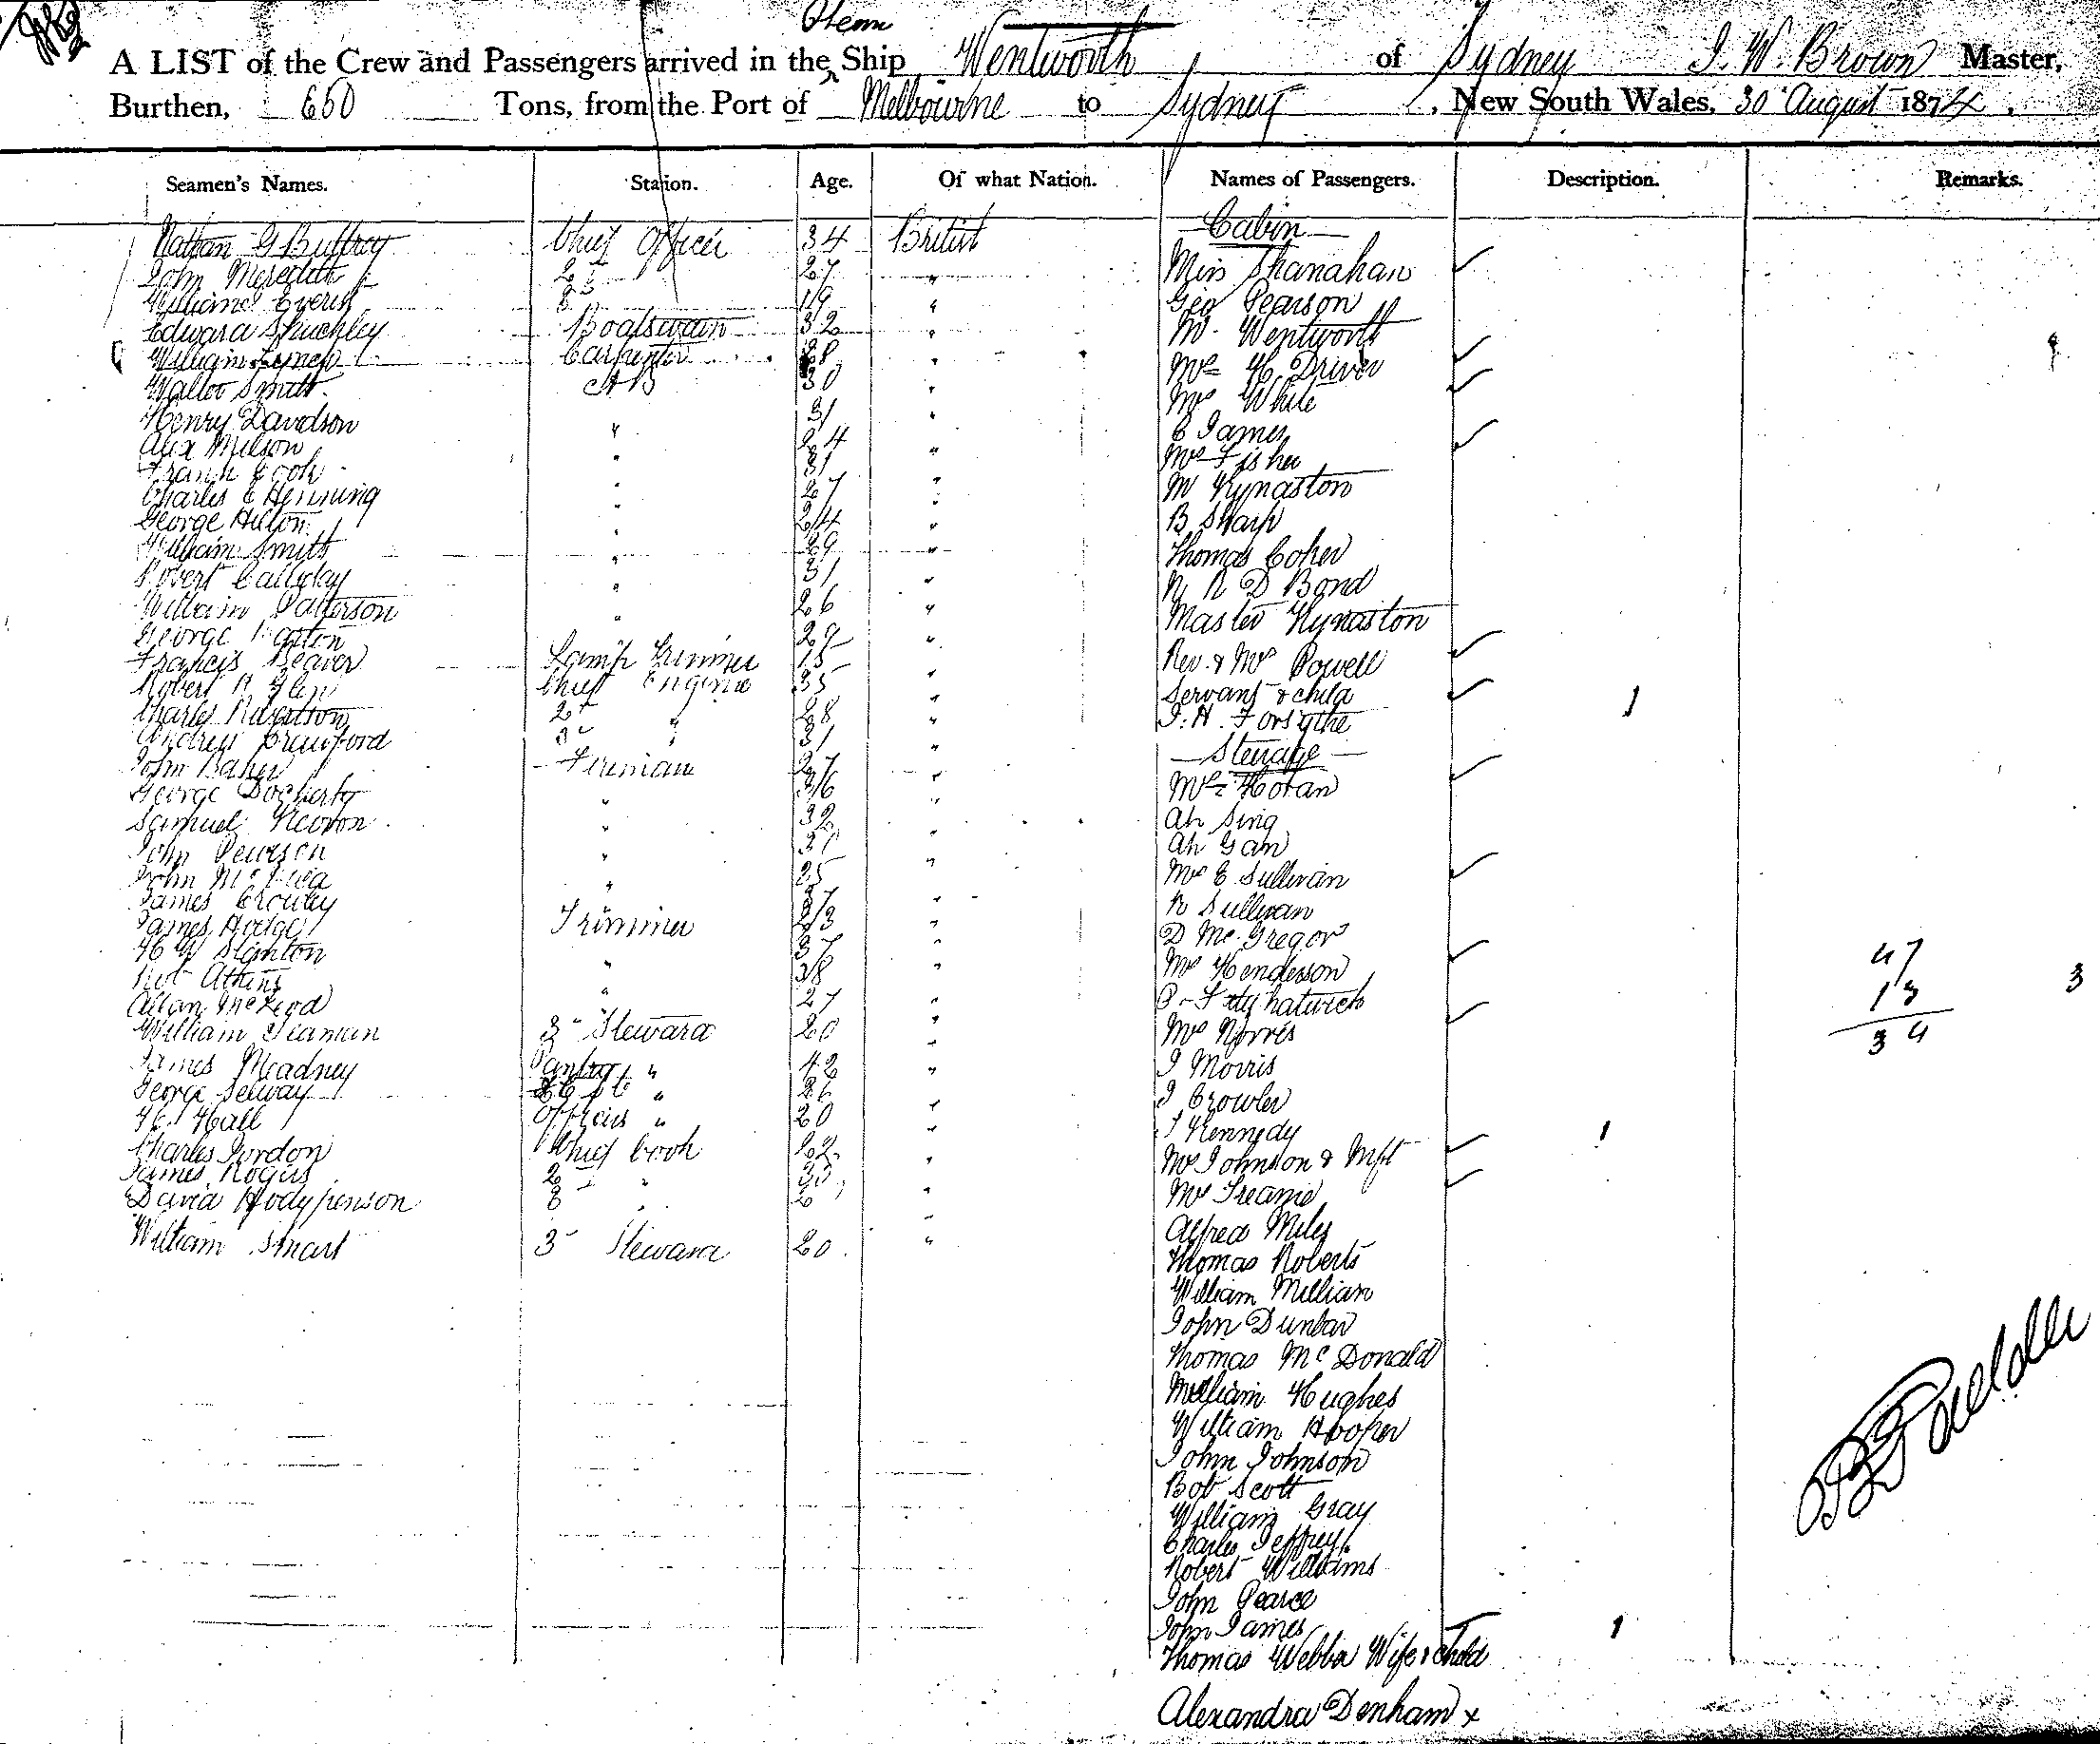 Steam
A LIST of the Crew and Passengers arrived in the Ship Wentworth of Sydney J. W. Brown Master,
Burthen, 650 Tons, from the Port of Melbourne to Sydney, New South Wales, 30 August 1874.
Seamen's Names. Station. Age. Of what Nation. Names of Passengers. Description. Remarks.
Nathan G Chief Officer 34 British
John Meredith 2 27 "
William 3 19 "
Edward Boatswain 32 "
William Carpenter 28 "
Walter Smith AB 30 "
Henry Davidson " 31 "
Alex Milson " 24 "
Frank Cook " 31 "
Charles E Henning " 27 "
George Hilton " 24 "
William Smith " 29 "
Robert " 31 "
William Patterson " 26 "
George " 29 "
Francis Beaver Lamp Trimmer 15 "
Robert Chief Engine 35 "
Charles 2 " 28 "
Andrew Crawford 3 " 31 "
John Baker Fireman 27 "
George Docherty " 36 "
Samuel " 32 "
John Pearson " 31 "
John " 25 "
James Crowley " 37 "
James Hodge Trimmer 23 "
H W Stanton " 37 "
Robt Atkins " 38 "
Allan McLeod " 27 "
William 3 Steward 20 "
James Meadney Pantry " 42 "
George Selway " 26 "
H Hall Officers " 20 "
Charles Gordon Chief Cook 22 "
James Rogers 2 " "
David 3 " "
William Smart 3 Steward 20 "
Cabin
Miss Shanahan
Geo Pearson
Mr Wentworth
Mrs H Driver
Mrs White
C James
Mrs Fisher
M Kynaston
B Sharp
Thomas Coher
N R D Bond
Master Kynaston
Rev. & Mrs Powell
Servant & child 1
J. H. Forsythe
Steerage
Mrs Horan
Ah Sing
Ah Gan
Mrs E Sullivan
R Sullivan
D McGregor
Mrs Henderson
Mrs Norris
J Morris
J Crowler
J Kennedy 1
Mrs Johnson & Inft
Mrs
Alfred Miles
Thomas Roberts
William Millian
John Dunbar
Thomas McDonald
William Hughes
William Hooper
John Johnson
Bob Scott
William Gray
Charles Jeffrey
Robert Williams
John Pearce
John James 1
Thomas Webba Wife & Child
Alexandra Denham x
47
13
34
3